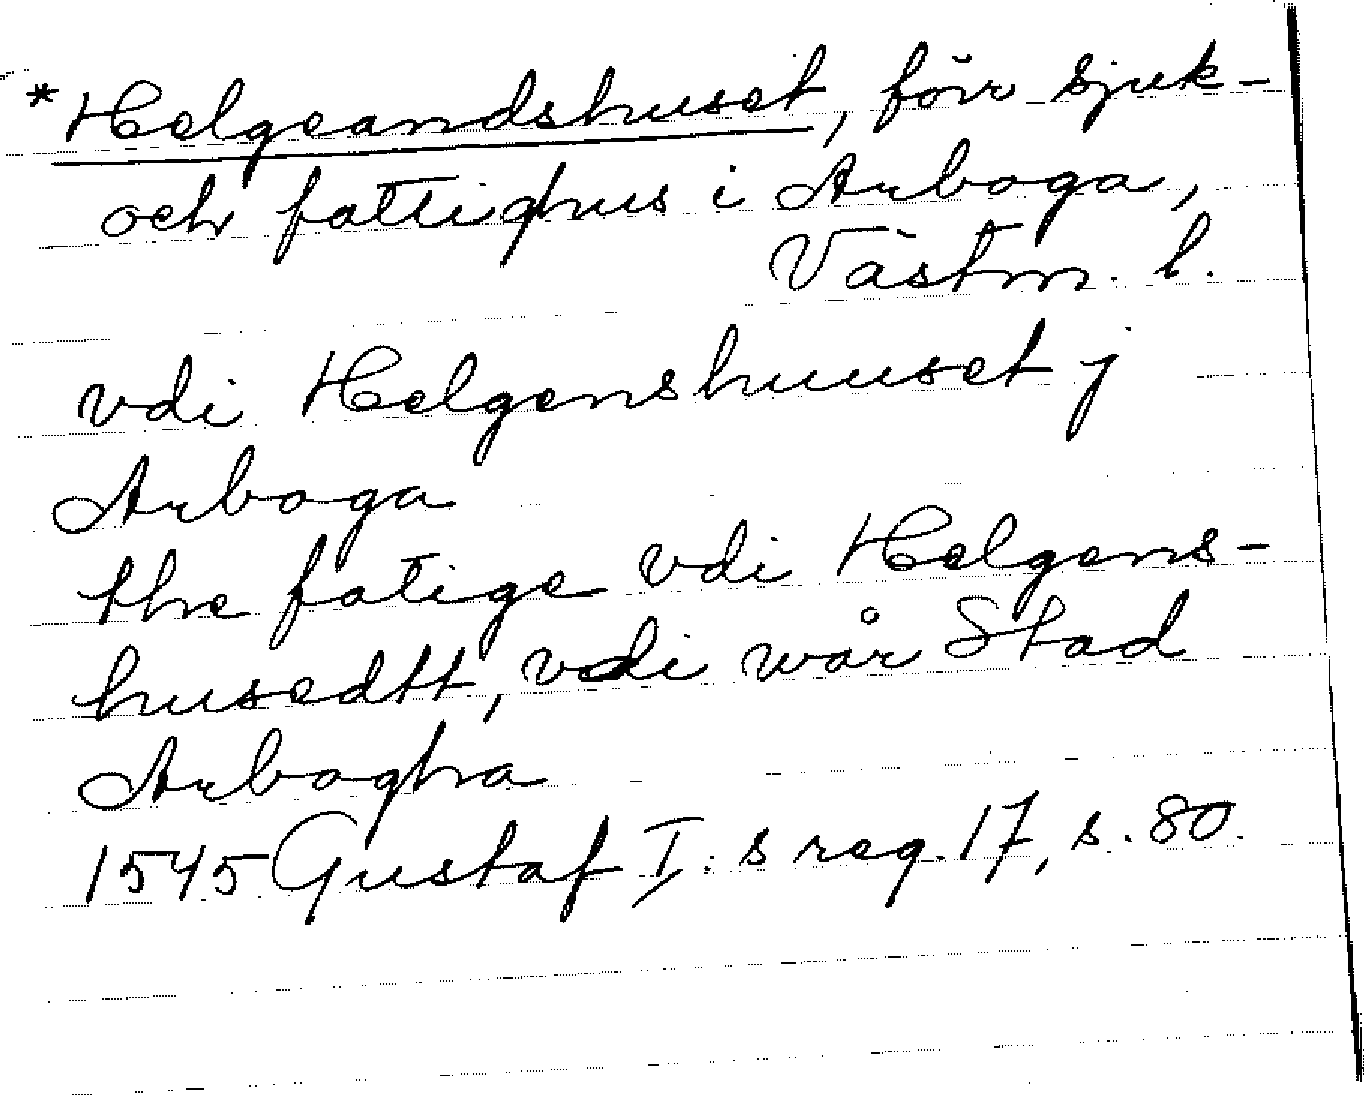 *Helgeandshuset, förr sjuk-
och fattighus i Arboga,
Västm. l.
vdi Helgenshuuset j
Arboga
the fatige vdi Helgens-
husedtt, vdi wår Stad
Arbogha
1545 Gustaf I:s reg. 17, s. 80.